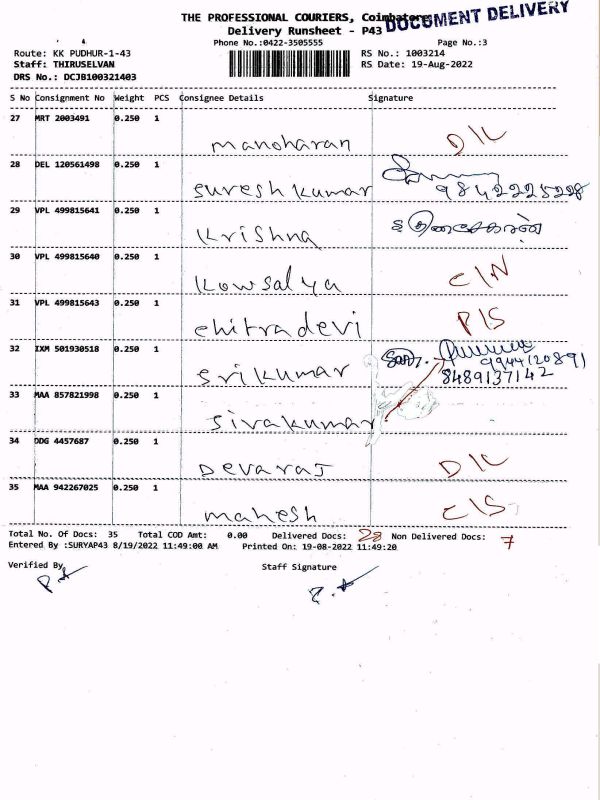 THE PROFESSIONAL COURIERS, Coimbatore
DOCUMENT DELIVERY
Delivery Runsheet - P43
Phone No.:0422-3505555
Page No.:3
Route: KK PUDHUR-1-43
RS No.: 1003214
Staff: THIRUSELVAN
RS Date: 19-Aug-2022
DRS No.: DCJB100321403
S No Consignment No Weight PCS Consignee Details Signature
27 MRT 2003491 0.250 1
manoharan D/L
28 DEL 120561498 0.250 1
sureshkumar 9842225228
29 VPL 499815641 0.250 1
Krishna
30 VPL 499815640 0.250 1
Kowsalya C/N
31 VPL 499815643 0.250 1
chitradevi P/S
32 IXM 501930518 0.250 1
srikumar 9944120891
8489137142
33 MAA 857821998 0.250 1
sivakumar
34 DDG 4457687 0.250 1
Devaraj D/L
35 MAA 942267025 0.250 1
mahesh C/S
Total No. Of Docs: 35 Total COD Amt: 0.00 Delivered Docs: 28 Non Delivered Docs: 7
Entered By :SURYAP43 8/19/2022 11:49:00 AM Printed On: 19-08-2022 11:49:20
Verified By
Staff Signature